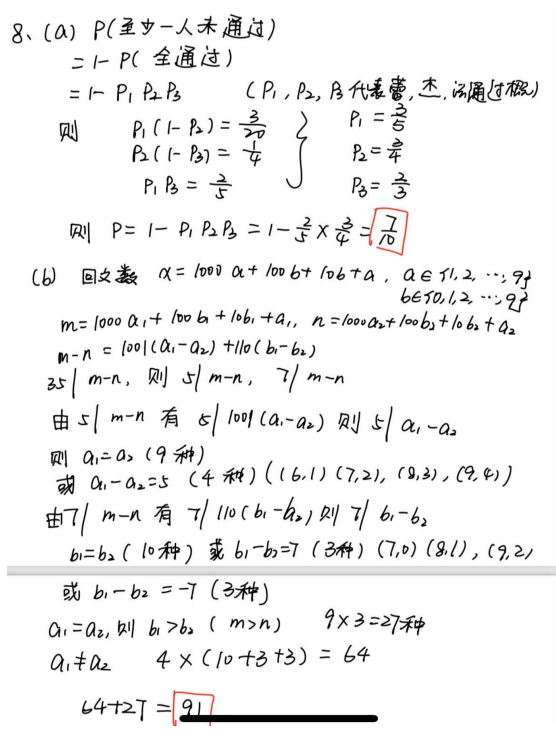 8、(a) P(至少一人未通过)
= 1- P( 全通过)
= 1- P₁ P₂ P₃ (P₁, P₂, P₃ 代表雷, 杰, 法通过概)
则 P₁(1-P₂) = 3/20 } P₁ = 3/5
P₂(1-P₃) = 1/4 P₂ = 3/4
P₁ P₃ = 2/5 P₃ = 2/3
则 P = 1- P₁ P₂ P₃ = 1- 2/5 × 3/4 = 7/10
(b) 回文数 x = 1000 a + 100 b + 10b + a, a ∈ {1, 2, ..., 9}
b ∈ {0, 1, 2, ..., 9}
m = 1000 a₁ + 100 b₁ + 10b₁ + a₁, n = 1000a₂ + 100b₂ + 10b₂ + a₂
m-n = 1001(a₁-a₂) + 110(b₁-b₂)
35| m-n, 则 5| m-n, 7| m-n
由 5| m-n 有 5| 1001 (a₁-a₂) 则 5| a₁-a₂
则 a₁=a₂ (9种)
或 a₁-a₂=5 (4种) ((6,1) (7,2), (8,3), (9,4))
由7| m-n 有 7| 110 (b₁-b₂) 则 7| b₁-b₂
b₁=b₂ ( 10种) 或 b₁-b₂=7 (3种) (7,0) (8,1), (9,2)
或 b₁-b₂ = -7 (3种)
a₁=a₂, 则 b₁>b₂ ( m>n) 9×3=27种
a₁≠a₂ 4 × (10+3+3) = 64
64+27 = 91